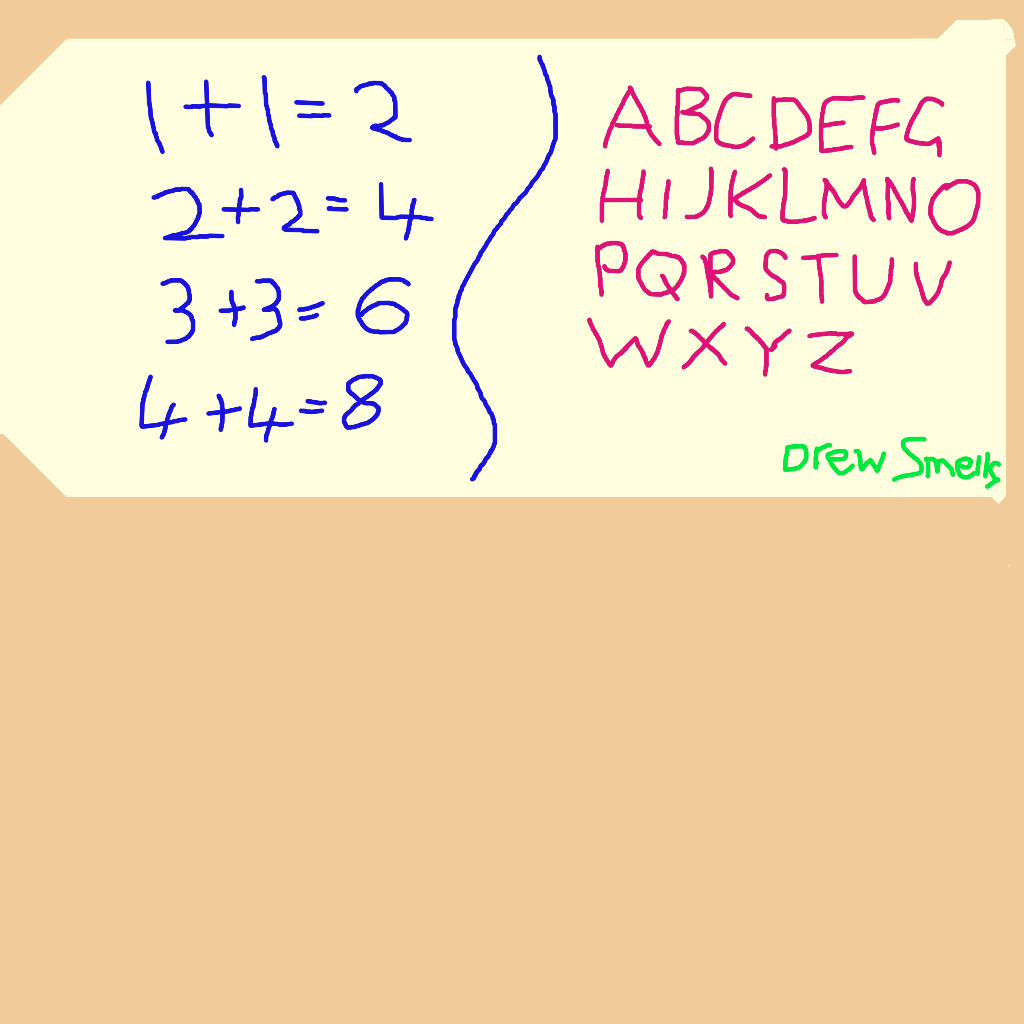 1+1=2
2+2=4
3+3=6
4+4=8
ABCDEFG
HIJKLMNO
PQRSTUV
WXYZ
Drew Smells